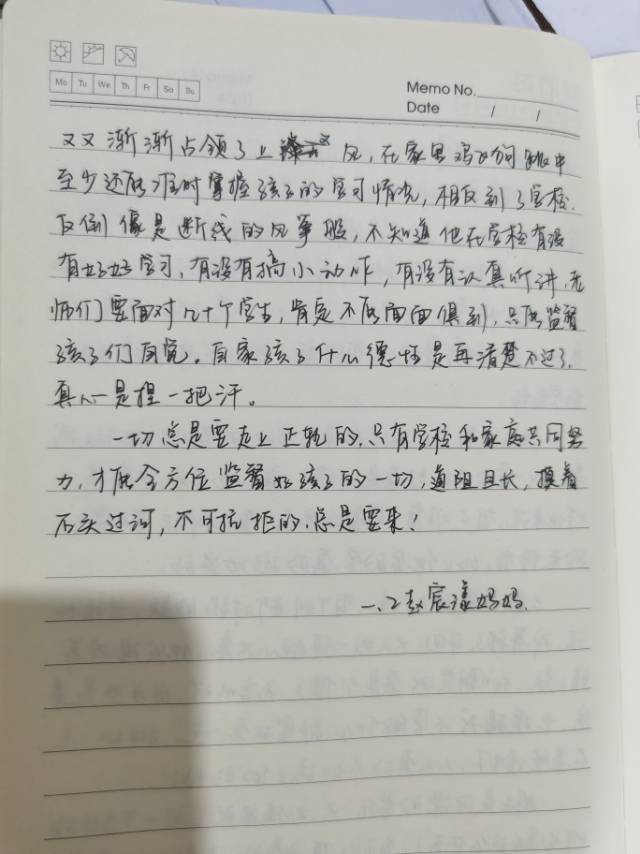 Mo Tu We Th Fr Sa Su
Memo No.
Date / /
又又渐渐占领了上 风，在家里鸡飞狗跳中
至少还能准时掌握孩子的学习情况，相反到了学校，
反倒像是断线的风筝般，不知道他在学校有没
有好好学习，有没有搞小动作，有没有认真听讲，老
师们要面对几十个学生，肯定不能面面俱到，只能监督
孩子们自觉。自家孩子什么德性是再清楚不过了，
真心是捏一把汗。
一切总是要走上正轨的，只有学校和家庭共同努
力，才能全方位监督好孩子的一切，道阻且长，摸着
石头过河，不可抗拒的，总是要来！
一.2 赵宸漾妈妈.